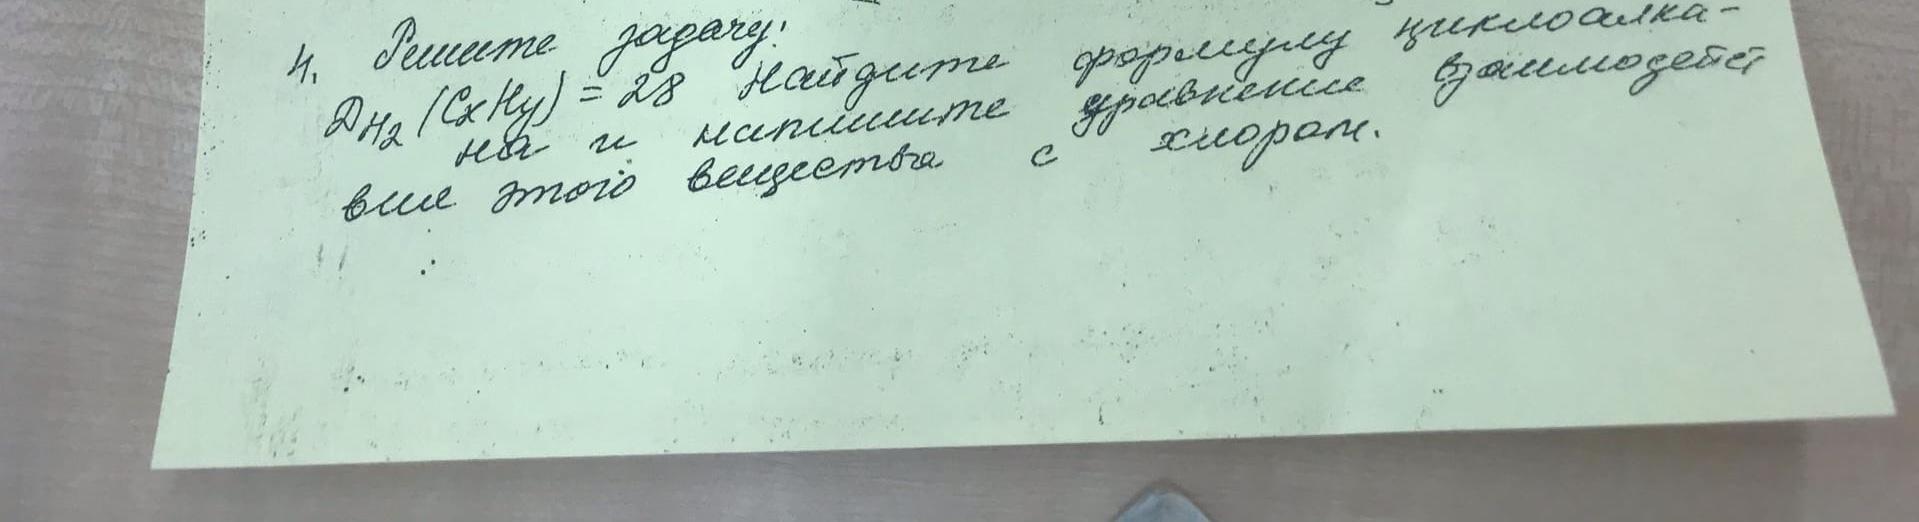 4. Решите задачу:
D H2 (CxHy) = 28 Найдите формулу циклоалка-
на и напишите уравнение взаимодейст
вия этого вещества с хлором.